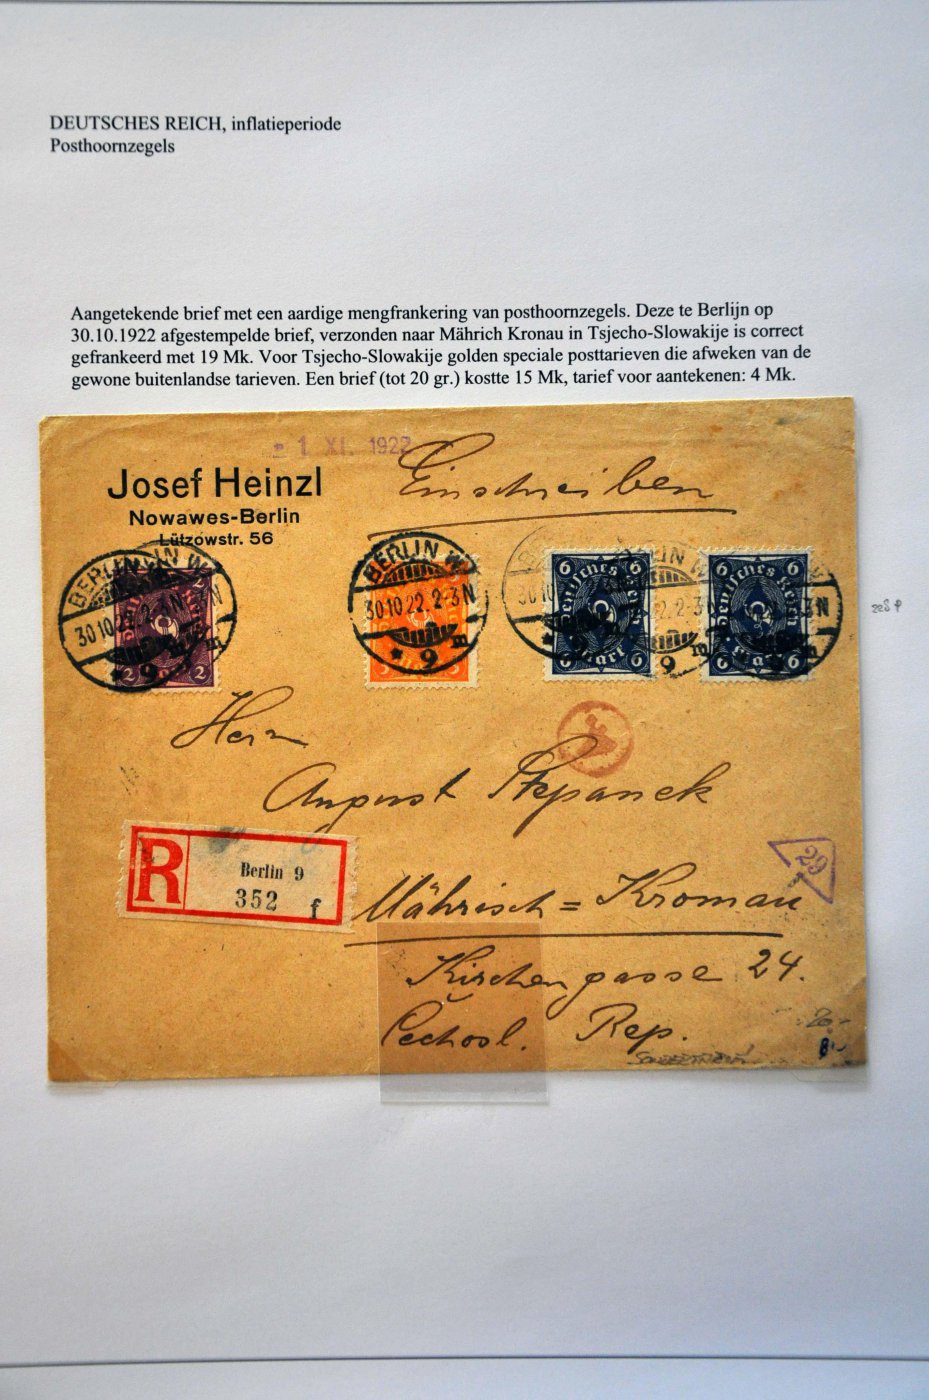 DEUTSCHES REICH, inflatieperiode
Posthoornzegels
Aangetekende brief met een aardige mengfrankering van posthoornzegels. Deze te Berlijn op
30.10.1922 afgestempelde brief, verzonden naar Mährich Kronau in Tsjecho-Slowakije is correct
gefrankeerd met 19 Mk. Voor Tsjecho-Slowakije golden speciale posttarieven die afweken van de
gewone buitenlandse tarieven. Een brief (tot 20 gr.) kostte 15 Mk, tarief voor aantekenen: 4 Mk.
- 1 XI. 1922
Einschreiben
Josef Heinzl
Nowawes-Berlin
Lützowstr. 56
BERLIN W
30 10 22. 2-3 N
* 9 m
2 2
2 2
BERLIN W
30 10 22. 2-3 N
* 9 m
6 6
Deutsches Reich
6 Mark 6
6 6
Deutsches Reich
6 Mark 6
9 m
Herrn
August Stepanek
R
Berlin 9
352 f
29
Mährisch = Kromau
Kirchengasse 24.
Čechosl. Rep.
20.-
8.-